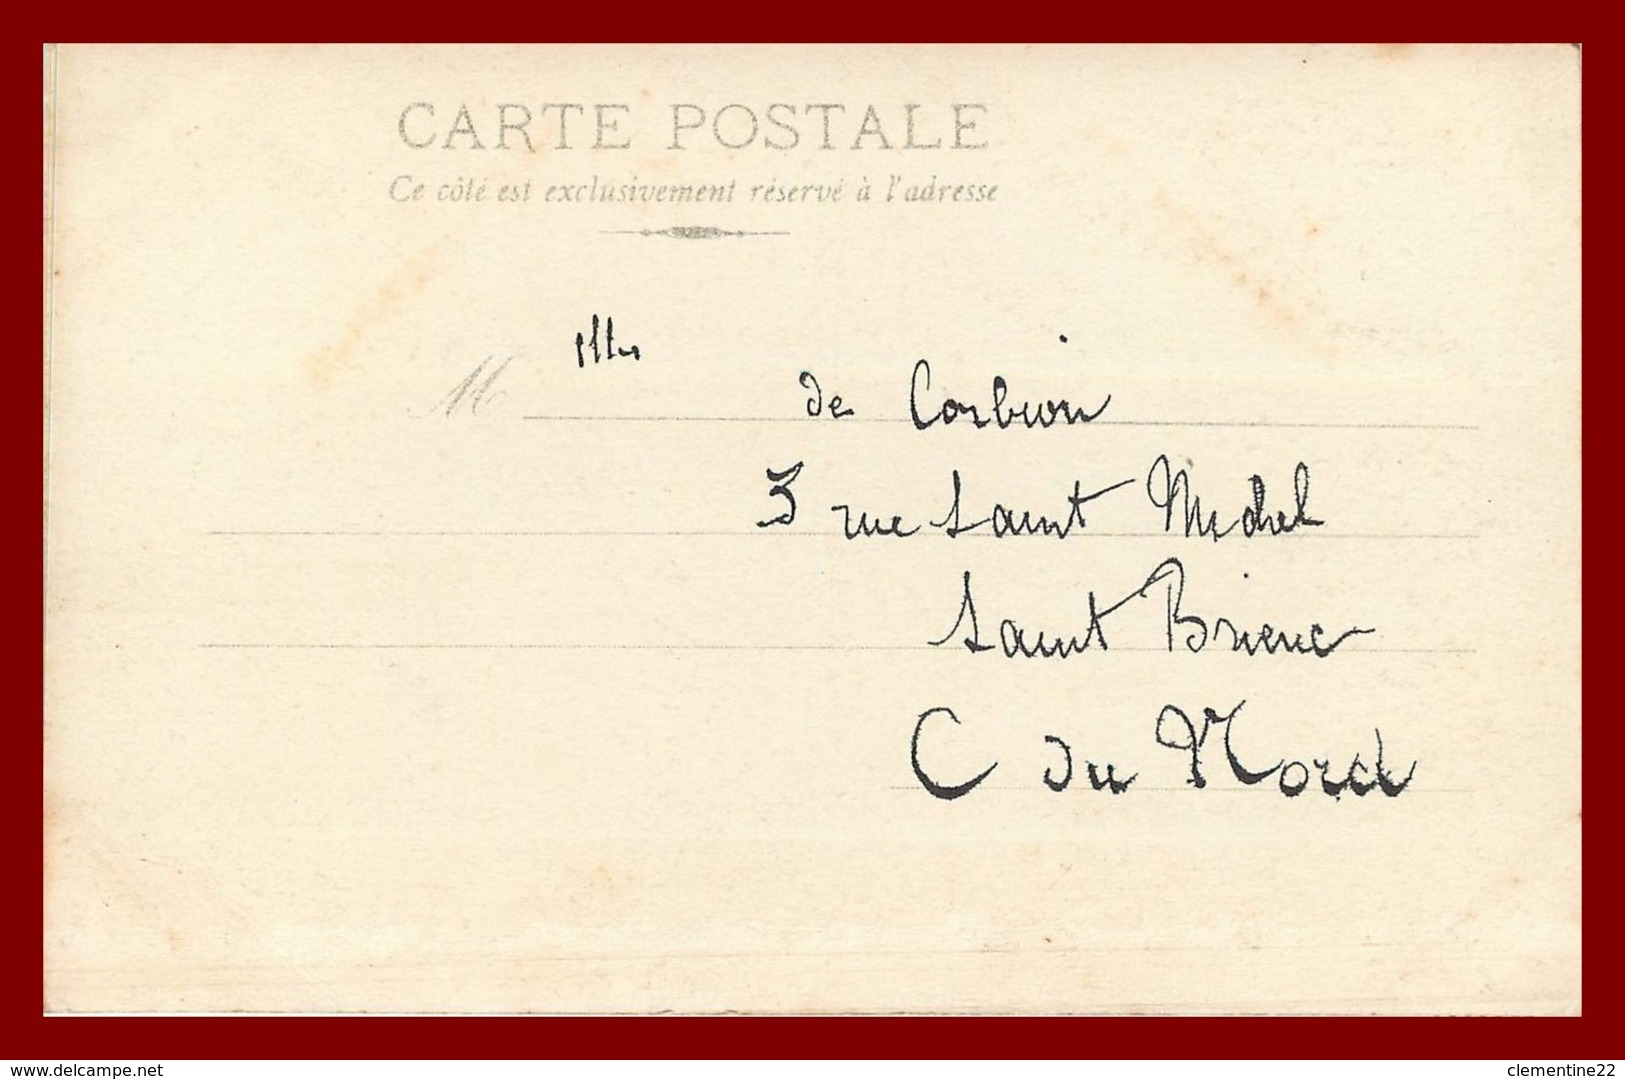 CARTE POSTALE
Ce côté est exclusivement réservé à l'adresse
M Mlle
de Corbion
3 rue Saint Michel
Saint Brieuc
C du Nord
www.delcampe.net
clementine22